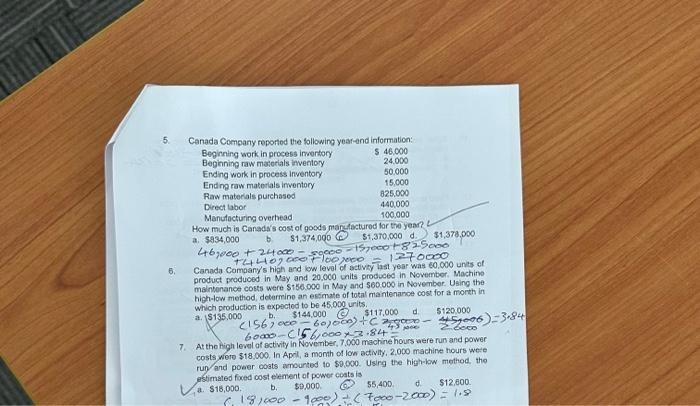 5. Canada Company reported the following year-end information:
Beginning work in process inventory $ 46,000
Beginning raw materials inventory 24,000
Ending work in process inventory 50,000
Ending raw materials inventory 15,000
Raw materials purchased 825,000
Direct labor 440,000
Manufacturing overhead 100,000
How much is Canada's cost of goods manufactured for the year?
a. $834,000 b. $1,374,000 c $1,370,000 d. $1,378,000
46,000 + 24000 - 50000 - 15,000 + 825000
+ 440,000 + 100,000 = 1270000
6. Canada Company's high and low level of activity last year was 60,000 units of
product produced in May and 20,000 units produced in November. Machine
maintenance costs were $156,000 in May and $60,000 in November. Using the
high-low method, determine an estimate of total maintenance cost for a month in
which production is expected to be 45,000 units.
a. $135,000 b. $144,000 c $117,000 d. $120,000
(156,000 - 60,000) ÷ ( - ) = 3.84
60000 - (156,000 × 3.84 =
7. At the high level of activity in November, 7,000 machine hours were run and power
costs were $18,000. In April, a month of low activity, 2,000 machine hours were
run and power costs amounted to $9,000. Using the high-low method, the
estimated fixed cost element of power costs is
a. $18,000. b. $9,000. c $5,400. d. $12,600.
(18,000 - 9000) ÷ (7000 - 2000) = 1.8